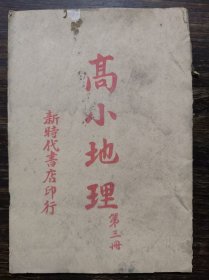 高小地理
第三冊
新時代書店印行